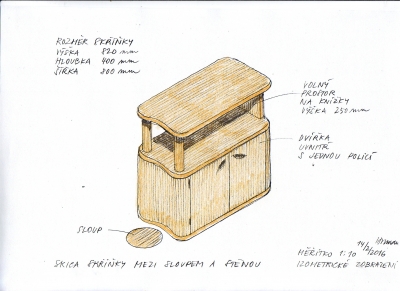 ROZMĚR SKŘÍŇKY
VÝŠKA 820 mm
HLOUBKA 400 mm
ŠÍŘKA 800 mm
VOLNÝ
PROSTOR
NA KNÍŽKY
VÝŠKA 250 mm
DVÍŘKA
UVNITŘ
S JEDNOU POLICÍ
SLOUP
SKICA SKŘÍŇKY MEZI SLOUPEM A STĚNOU
MĚŘÍTKO 1:10
IZOMETRICKÉ ZOBRAZENÍ